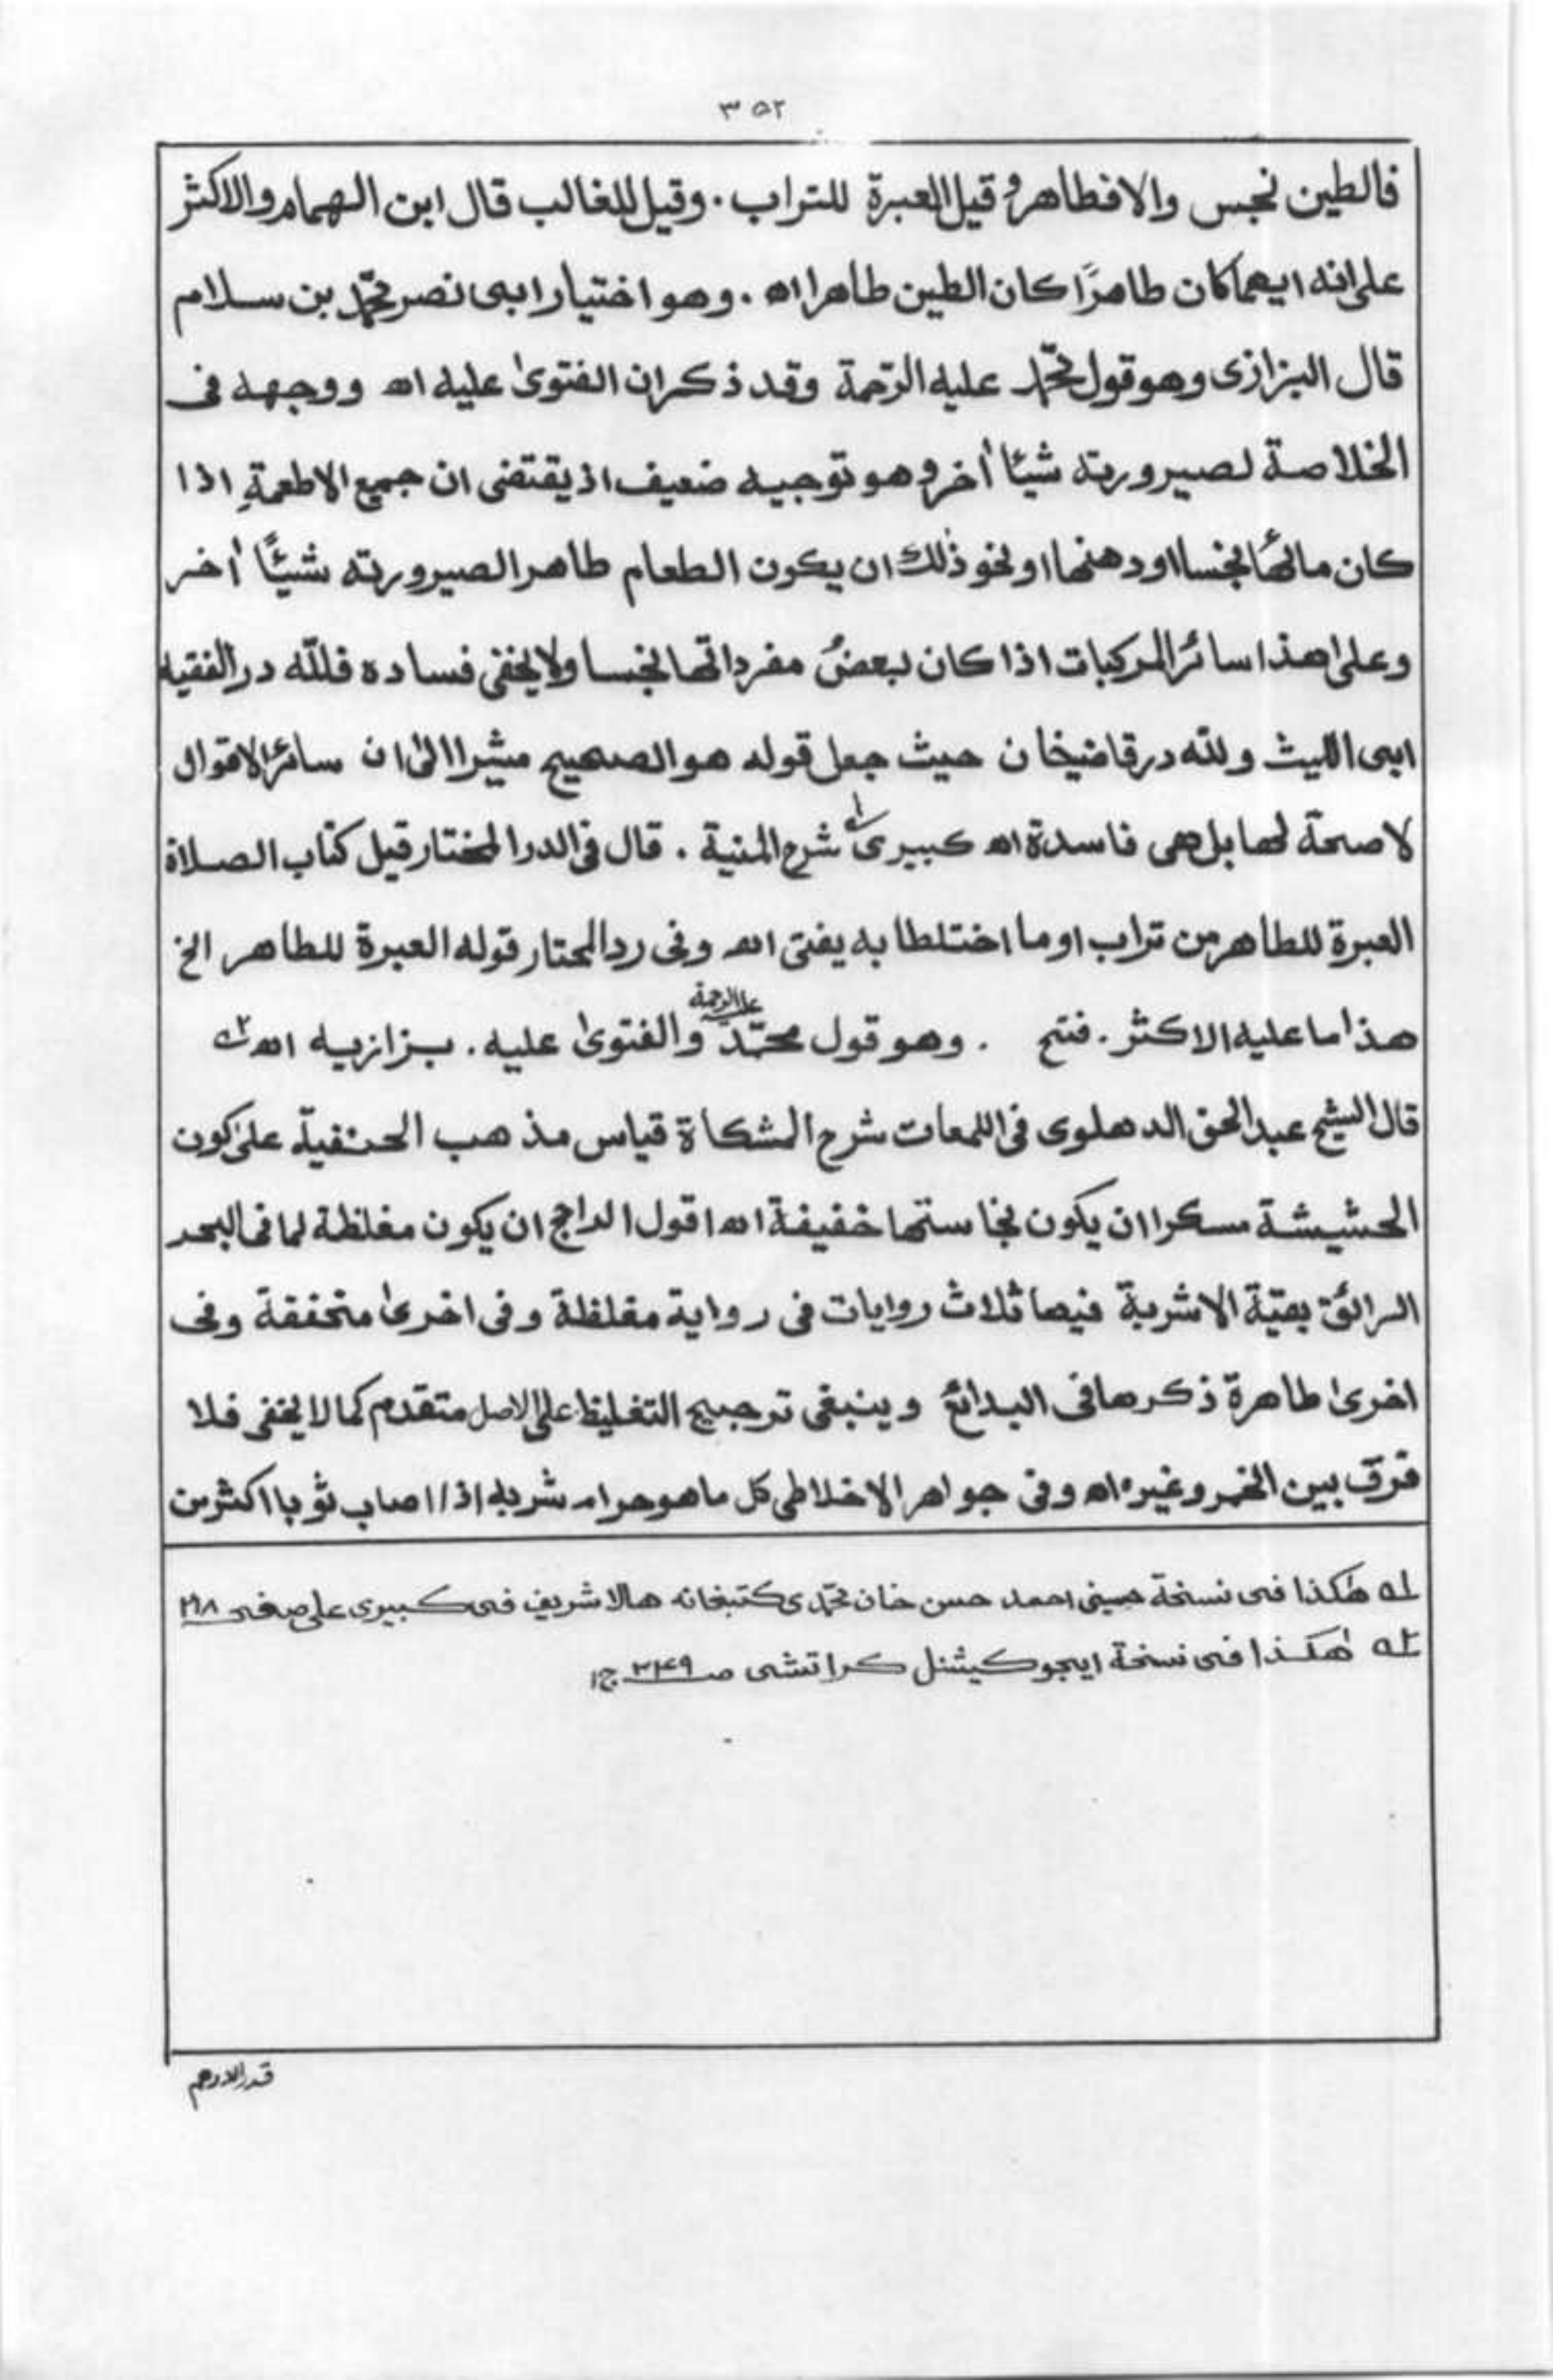 ٣٥٢
فالطين نجس والا فطاهر و قيل العبرة للتراب . وقيل للغالب قال ابن الهمام والاكثر
على انه ايهما كان طاهرًا كان الطين طاهرا اه . وهو اختيار ابى نصر محمّد بن سلام
قال البزازى وهو قول محمّد عليه الرّحمة وقد ذكر ان الفتوىٰ عليه اه ووجهه فى
الخلاصة لصيرورته شيئا اٰخر و هو توجيه ضعيف اذ يقتضى ان جميع الاطعمةِ اذا
كان مائها نجسا او دهنها او نحو ذٰلك ان يكون الطعام طاهرا لصيرورته شيئًا اٰخر
وعلىٰ هذا سائر المركبات اذا كان بعضُ مفرداتها نجسا ولا يخفى فساده فللّه در الفقيه
ابى الليث ولله در قاضيخان حيث جعل قوله هو الصحيح مشيرا الىٰ ان سائر الاقوال
لا صحة لها بل هى فاسدة اه كبيرى ؎۱ شرح المنية . قال فى الدر المختار قبل كتاب الصلاة
العبرة للطاهر من تراب او ما اختلطا به يفتى اه وفى رد المحتار قوله العبرة للطاهر الخ
هذا ما عليه الاكثر . فتح . وهو قول محمّد عليه الرحمة والفتوىٰ عليه . بزازيه اه ؎۲
قال الشيخ عبد الحق الدهلوى فى اللمعات شرح المشكاة قياس مذهب الحنفية علىٰ كون
الحشيشة مسكرا ان يكون نجاستها خفيفة اه اقول الراجح ان يكون مغلظة لما فى البحر
الرائق بقيّة الاشربة فيها ثلاث روايات فى رواية مغلظة وفى اخرىٰ متخففة وفى
اخرىٰ طاهرة ذكرها فى البدائع وينبغى ترجيح التغليظ على الاصل متقدم كما لا يخفى فلا
فرق بين الخمر وغيره اه وفى جواهر الاخلاطى كل ما هو حرام شربه اذا اصاب ثوبا اكثر من
؎۱ هٰكذا فى نسخة حسينى احمد حسن خان محمّدى كتبخانه هالا شريف فى كبيرى على صفحه
؎۲ هٰكذا فى نسخة ايجوكيشنل كراتشى صـ ٣٤٩ ج۱
قدر الدرهم